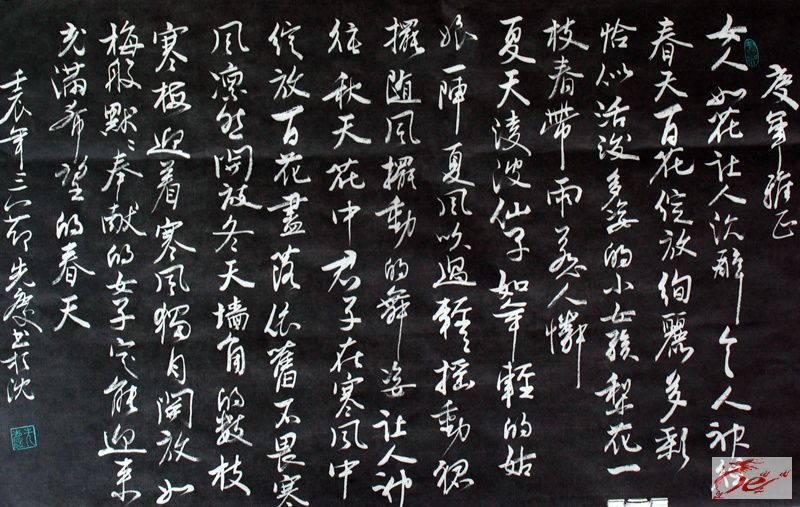 度年雅正
女人如花让人沉醉令人神往
春天百花绽放绚麗多彩
恰似活泼多姿的小女孩梨花一
枝春带雨惹人怜
夏天淩波仙子如年輕的姑
娘一陣夏風吹過輕輕摇動裙
擺随風擺動的舞姿让人神
往秋天花中君子在寒風中
绽放百花盡落依舊不畏寒
風凛然開放冬天墙角的數枝
寒梅迎着寒風獨自開放如
梅般默默奉献的女子定能迎来
充滿希望的春天
壬辰年三八節先慶書於沈